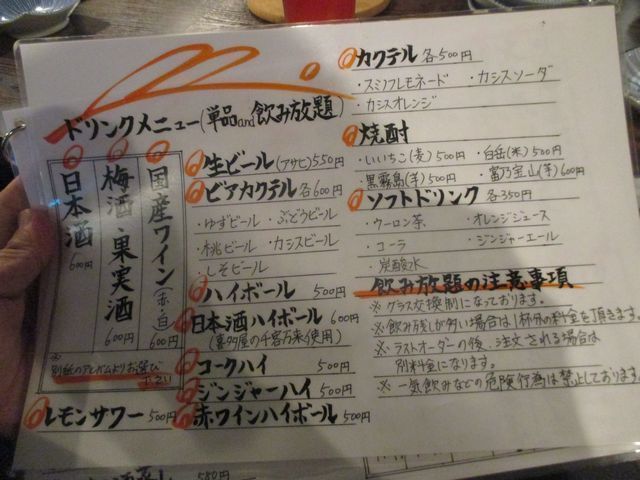 ドリンクメニュー(単品and飲み放題)
国産ワイン(赤・白) 600円
梅酒・果実酒 600円
日本酒 600円
※
別紙のアルバムよりお選び
下さい
レモンサワー 500円
生ビール(アサヒ)550円
ビアカクテル 各600円
・ゆずビール ・ぶどうビール
・桃ビール ・カシスビール
・しそビール
ハイボール 500円
日本酒ハイボール 600円
(喜多屋の千客万来使用)
コークハイ 500円
ジンジャーハイ 500円
赤ワインハイボール 500円
カクテル 各500円
・スミノフレモネード ・カシスソーダ
・カシスオレンジ
焼酎
・いいちこ(麦)500円 ・白岳(米)500円
・黒霧島(芋)500円 ・富乃宝山(芋)600円
ソフトドリンク 各350円
・ウーロン茶 ・オレンジジュース
・コーラ ・ジンジャーエール
・炭酸水
飲み放題の注意事項
※グラス交換制になっております。
※飲み残しが多い場合は1杯分の料金を頂きます。
※ラストオーダーの後、注文される場合は
別料金になります。
※一気飲みなどの危険行為は禁止しております。
550円